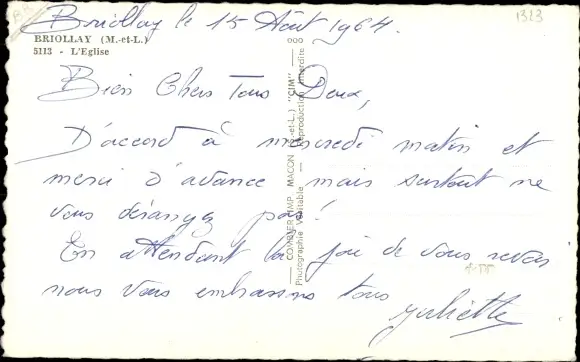 Briollay le 15 Août 1964.
1323
BRIOLLAY (M.-et-L.)
5113 - L'Eglise
Bien Chers Tous Deux,
D'accord à mercredi matin et
merci d'avance mais surtout ne
vous dérangez pas!
En attendant la joie de vous revoir
nous vous embrassons tous
Juliette
COMBIER IMP. MACON (S.-et-L.) "CIM"
Photographie Véritable - Reproduction Interdite